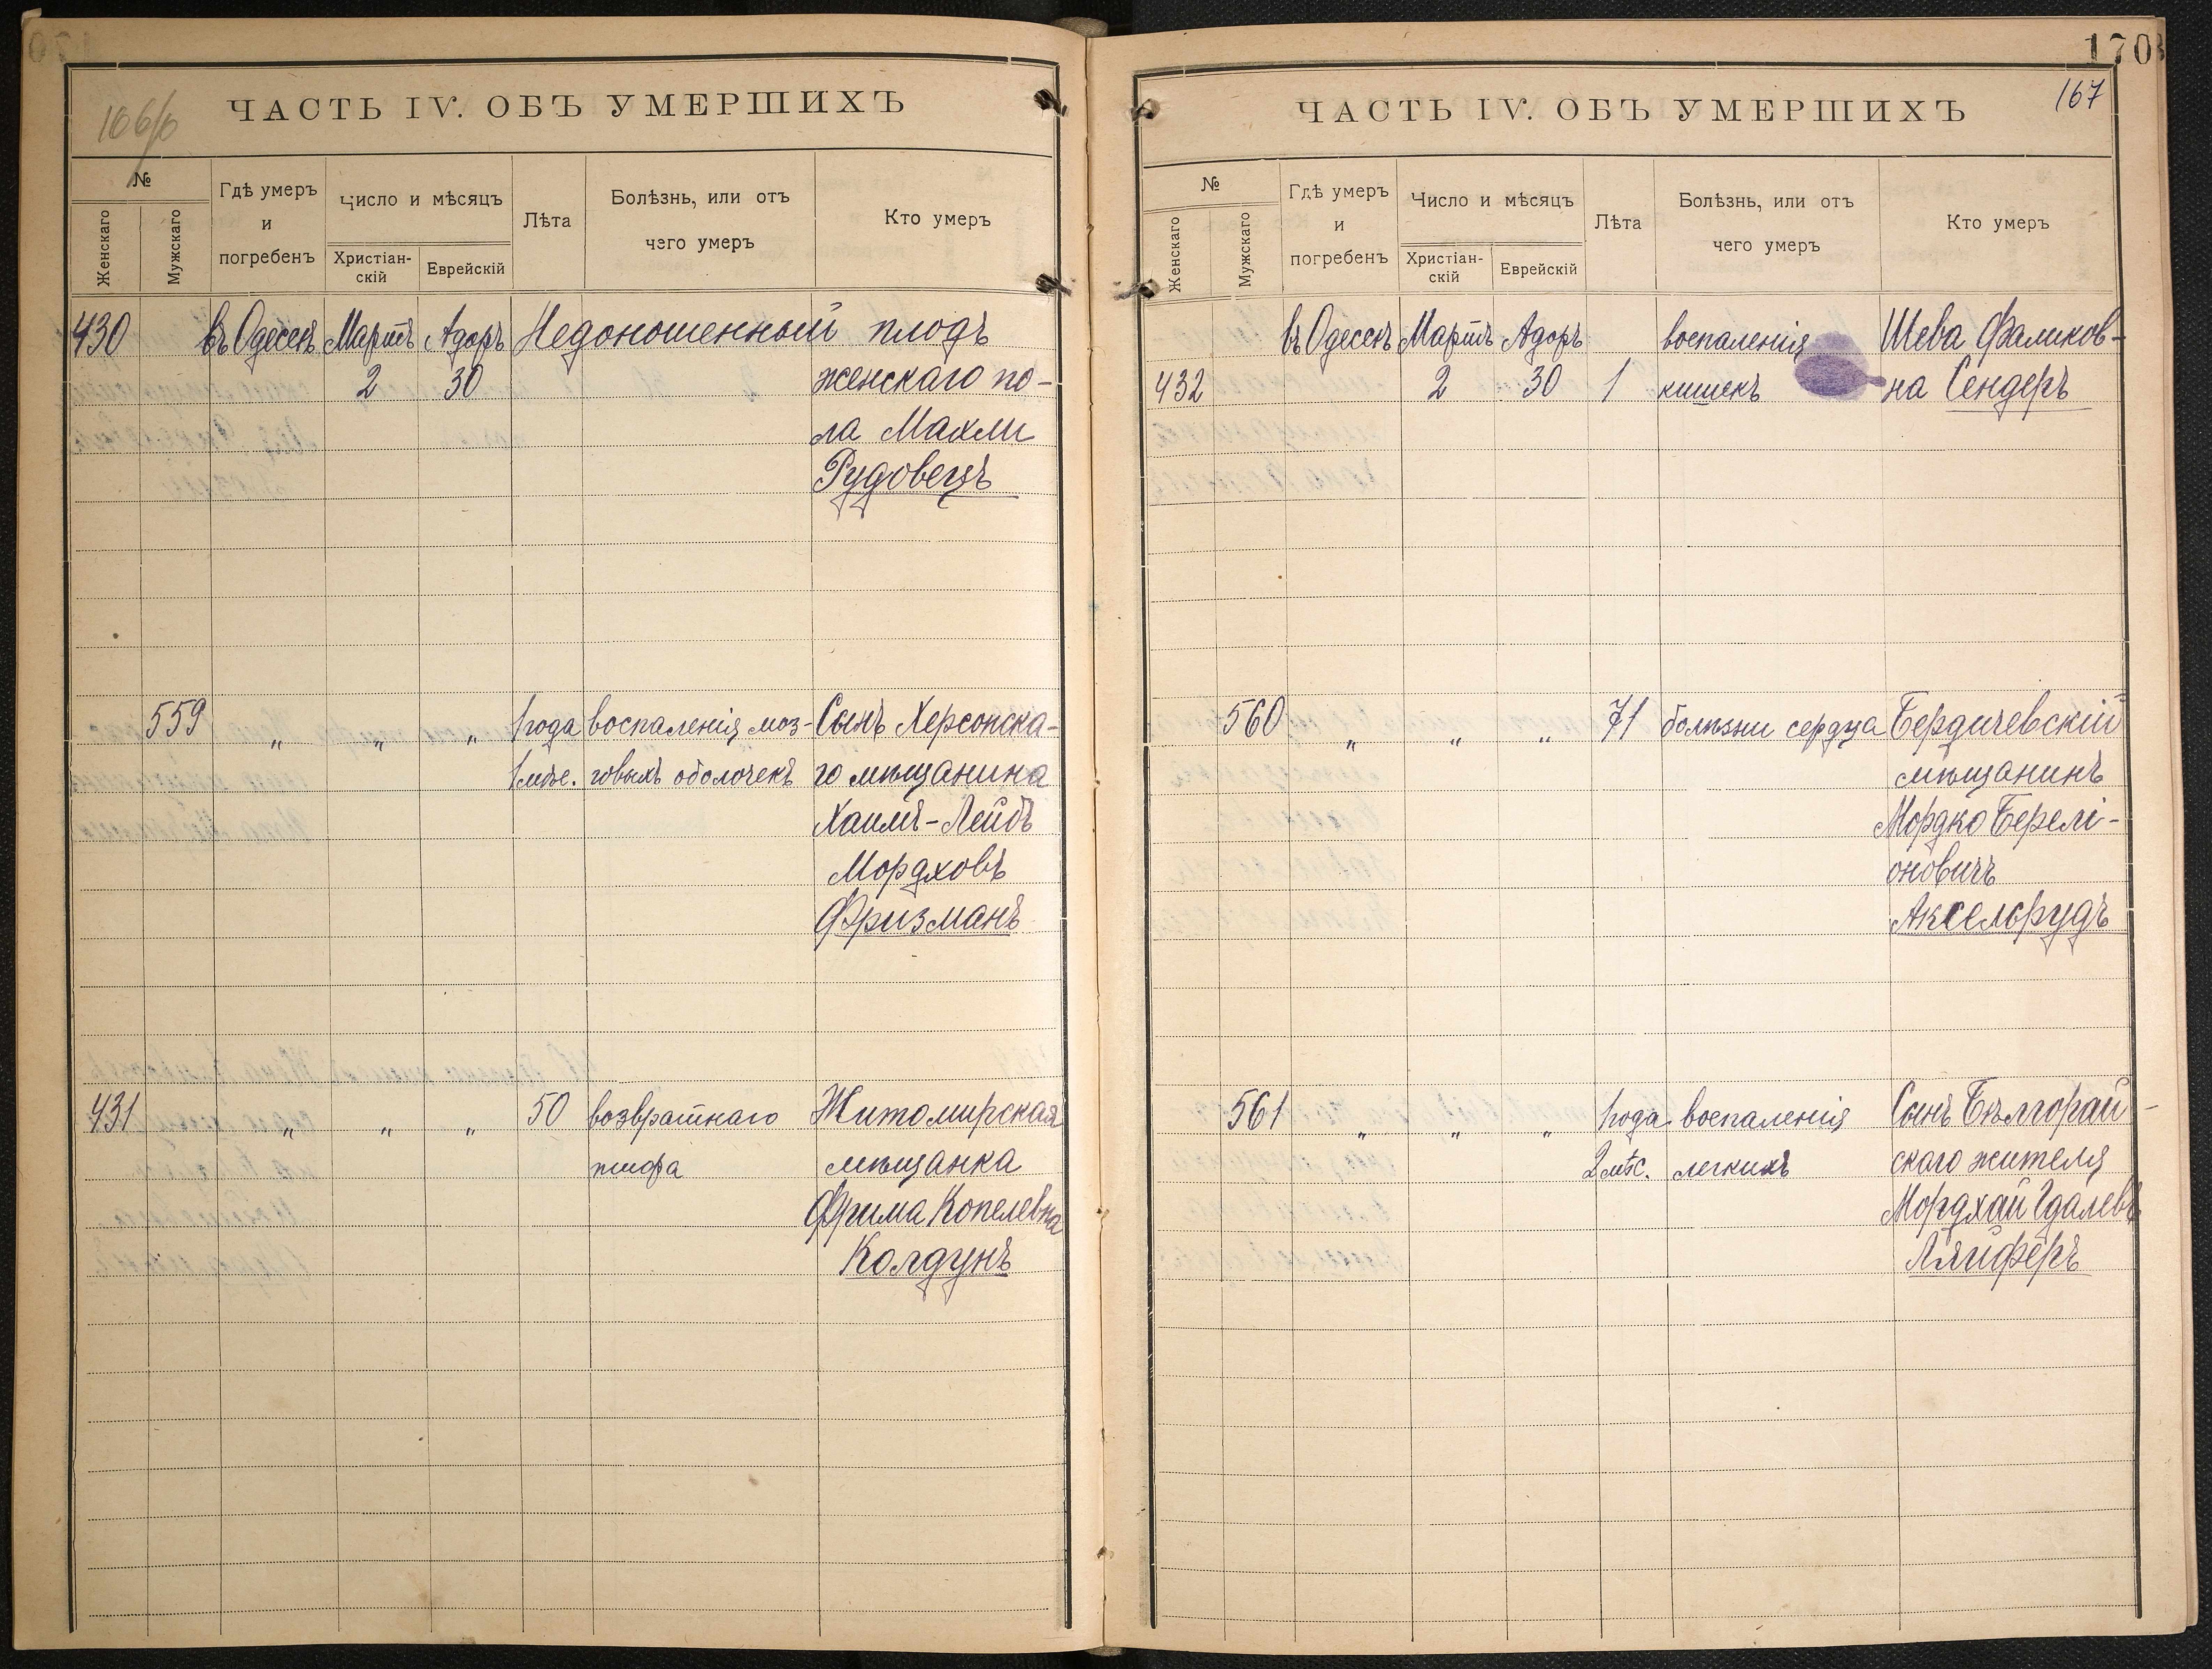 166/б
ЧАСТЬ IV. ОБЪ УМЕРШИХЪ
№
Женскаго
Мужскаго
Гдѣ умеръ
и
погребенъ
Число и мѣсяцъ
Христіан-
скій
Еврейскій
Лѣта
Болѣзнь, или отъ
чего умеръ
Кто умеръ
430 въ Одессѣ Мартъ Адоръ Недоношенный плодъ
2 30 женскаго по-
ла Махли
Рудовецъ
559 „ „ „ 1 года воспаленія моз- Сынъ Херсонска-
1 мѣс. говыхъ оболочекъ го мѣщанина
Хаимъ-Лейбъ
Мордховъ
Фризманъ
431 „ „ „ 50 возвратнаго Житомирская
тифа мѣщанка
Фрима Копелевна
Колдунъ
170
167
ЧАСТЬ IV. ОБЪ УМЕРШИХЪ
№
Женскаго
Мужскаго
Гдѣ умеръ
и
погребенъ
Число и мѣсяцъ
Христіан-
скій
Еврейскій
Лѣта
Болѣзнь, или отъ
чего умеръ
Кто умеръ
въ Одессѣ Мартъ Адоръ воспаленія Шева Фаликов-
432 2 30 1 кишекъ на Сендеръ
560 „ „ „ 71 болѣзни сердца Бердичевскій
мѣщанинъ
Мордко Берелі-
оновичъ
Аксельрудъ
561 „ „ „ 1 года воспаленія Сынъ Бѣлгорай-
2 мѣс. легкихъ скаго жителя
Мордхай Гдалевъ
Ляйферъ